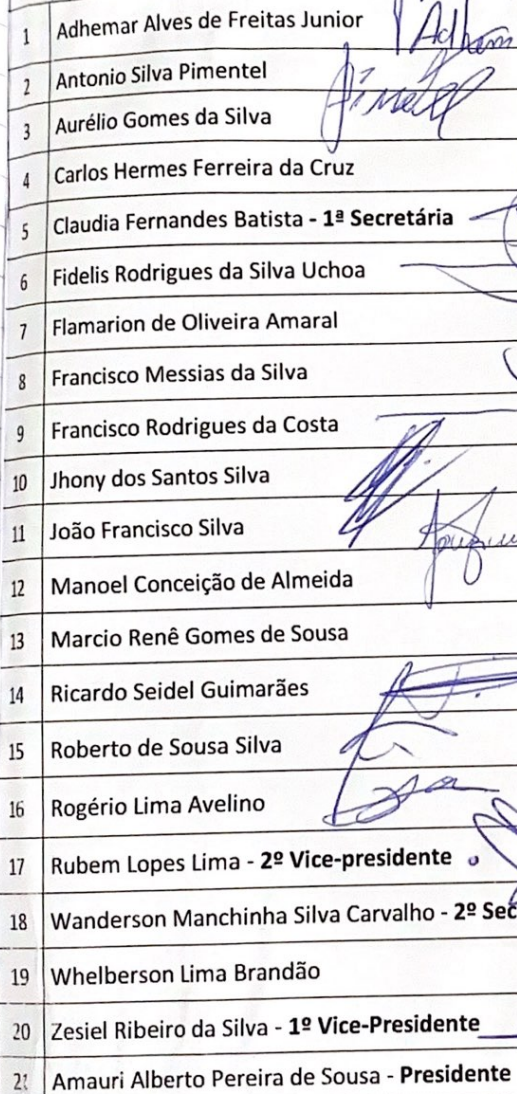 1 Adhemar Alves de Freitas Junior Adhem
2 Antonio Silva Pimentel Pimentel
3 Aurélio Gomes da Silva
4 Carlos Hermes Ferreira da Cruz
5 Claudia Fernandes Batista - 1ª Secretária
6 Fidelis Rodrigues da Silva Uchoa
7 Flamarion de Oliveira Amaral
8 Francisco Messias da Silva
9 Francisco Rodrigues da Costa
10 Jhony dos Santos Silva
11 João Francisco Silva
12 Manoel Conceição de Almeida
13 Marcio Renê Gomes de Sousa
14 Ricardo Seidel Guimarães
15 Roberto de Sousa Silva
16 Rogério Lima Avelino
17 Rubem Lopes Lima - 2º Vice-presidente
18 Wanderson Manchinha Silva Carvalho - 2º Sec
19 Whelberson Lima Brandão
20 Zesiel Ribeiro da Silva - 1º Vice-Presidente
21 Amauri Alberto Pereira de Sousa - Presidente